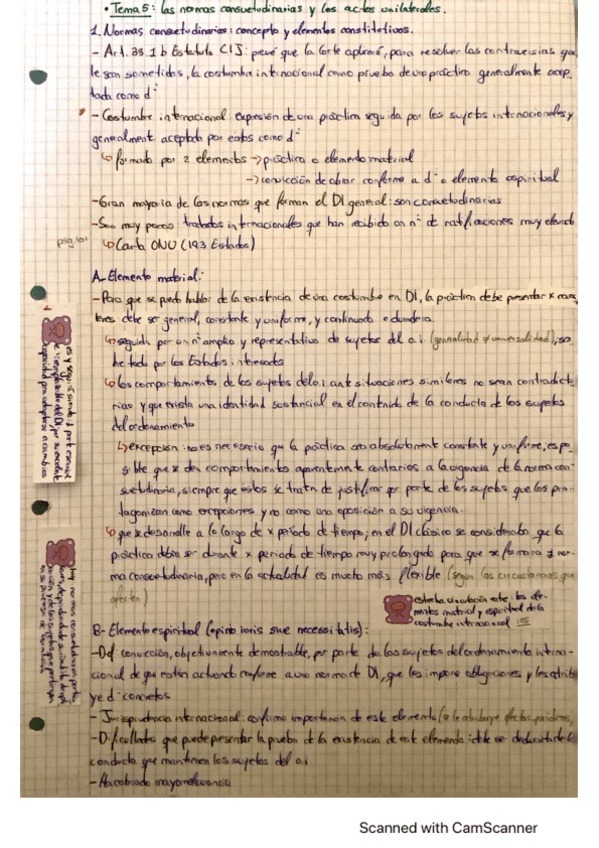 • Tema 5: las normas consuetudinarias y los actos unilaterales.
1. Normas consuetudinarias: concepto y elementos constitutivos.
- Art. 38.1 b Estatuto CIJ: prevé que la Corte aplicará, para resolver las controversias que
le son sometidas, la costumbre internacional como prueba de una práctica generalmente acep-
tada como dº
- Costumbre internacional expresión de una práctica seguida por los sujetos internacionales y
generalmente aceptada por estos como dº
formada por 2 elementos → práctica o elemento material
→ convicción de obrar conforme a dº o elemento espiritual
- Gran mayoría de las normas que forman el DI general: son consuetudinarias
- Son muy pocos tratados internacionales que han recibido un nº de ratificaciones muy elevado
pág. 101
Carta ONU (193 Estados)
A- Elemento material:
- Para que se pueda hablar de la existencia de una costumbre en DI, la práctica debe presentar x carac
teres debe ser general, constante y uniforme, y continuada o duradera.
seguida por un nº amplio y representativo de sujetos del o.i (generalidad ≠ universalidad), so
bre todo por los Estados interesados
los comportamientos de los sujetos del o.i ante situaciones similares no sean contradicto
rias y que exista una identidad sustancial en el contenido de la conducta de los sujetos
del ordenamiento
excepción: no es necesario que la práctica sea absolutamente constante y uniforme, es po
sible que se den comportamientos aparentemente contrarios a la vigencia de la norma con
suetudinaria, siempre que estos se traten de justificar por parte de los sujetos que los pro-
tagonizan como excepciones y no como una oposición a su vigencia.
que se desarrolle a lo largo de x período de tiempo, en el DI clásico se consideraba que la
práctica debía ser durante x período de tiempo muy prolongado para que se formara 1 nor-
ma consuetudinaria, pero en la actualidad es mucho más flexible (según las circunstancias que
estrecha vinculación entre los ele-
mentos material y espiritual de la
costumbre internacional
B- Elemento espiritual (opinio iuris sive necessitatis):
- Def convicción, objetivamente demostrable, por parte de los sujetos del ordenamiento interna-
cional de que están actuando conforme a una norma de DI, que les impone obligaciones y les atribu
ye dº concretos
- Jurisprudencia internacional: confirma importancia de este elemento (
- Dificultades que puede presentar la prueba de la existencia de este elemento: debe deducirse de la
conducta que mantienen los sujetos del o.i
- Ha cobrado mayor relevancia
Scanned with CamScanner